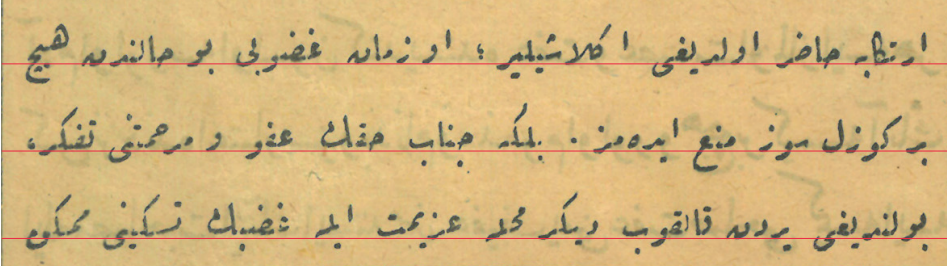 ارتكابه حاضر اولديغى اكلاشيلير ؛ او زمان غضوبى بو حالندن هيچ
بر كوزل سوز منع ايده‌مز . بلكه جناب حقك عفو و مرحمتنى تفكر ،
بولنديغى يردن قالقوب ديكر محله عزيمت ايله غضبك تسكينى ممكن